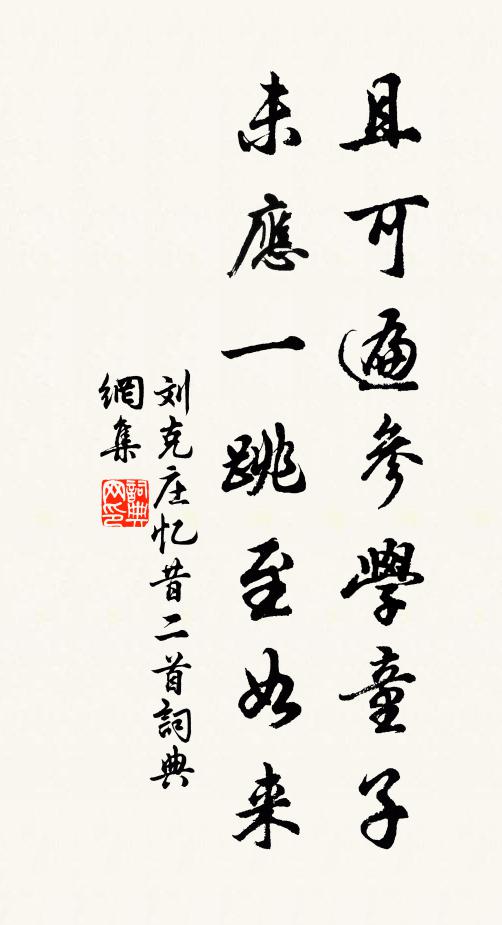 且可遍參學童子
未應一跳至如来
刘克庄忆昔二首詞典
網集
詞典
网印